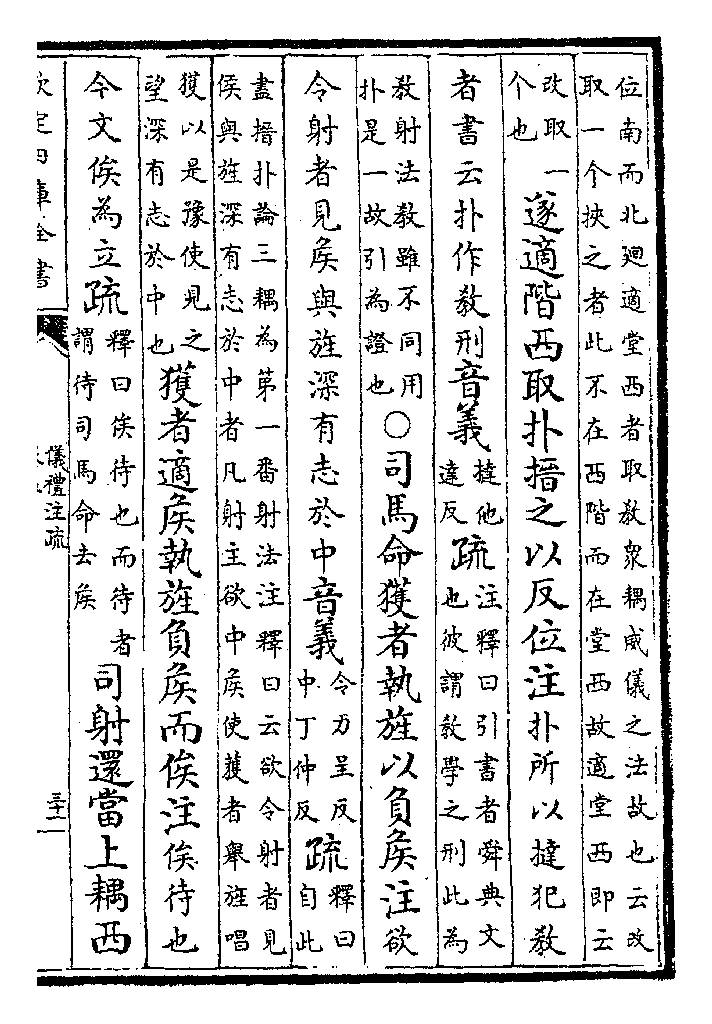 位南而北廻適堂西者取敎衆耦威儀之法故也云改
取一个挾之者此不在西階而在堂西故適堂西即云
改取一
个也
遂適階西取扑搢之以反位注扑所以撻犯敎
者書云扑作敎刑音義
撻他
達反
疏
注釋曰引書者舜典文
也彼謂敎學之刑此為
敎射法敎雖不同用
扑是一故引為證也
○司馬命獲者執旌以負矦注欲
令射者見矦與旌深有志於中音義
令力呈反
中丁仲反
疏
釋曰
自此
盡搢扑論三耦為第一番射法注釋曰云欲令射者見
矦與旌深有志於中者凡射主欲中矦使獲者舉旌唱
獲以是豫使見之
望深有志於中也
獲者適矦執旌負矦而俟注俟待也
今文俟為立疏
釋曰俟待也而待者
謂待司馬命去矦
司射還當上耦西
欽定四庫全書
儀禮注疏
三十二